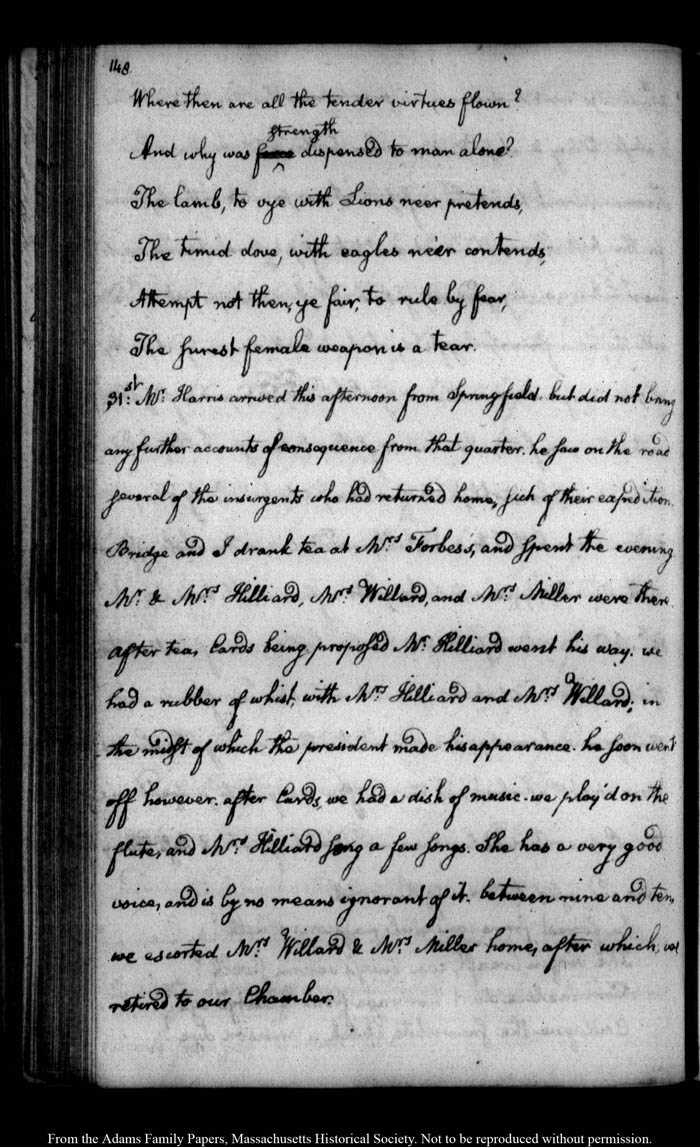 148
Where then are all the tender virtues flown?
strength
And why was dispensed to man alone?
The lamb, to vye with Lions neer pretends,
The timid dove, with eagles ne'er contends,
Attempt not then, ye fair, to rule by fear,
The surest female weapon is a tear.
31st. Mr. Harris arrived this afternoon from Springfield. but did not bring
any further accounts of consequence from that quarter. he saw on the road
several of the insurgents who had returned home, sick of their expedition.
Bridge and I drank tea at Mrs. Forbes's, and spent the evening
Mr. & Mrs. Hilliard, Mrs. Willard, and Mrs. Miller were there
after tea, Cards being proposed Mr. Hilliard went his way. we
had a rubber of whist, with Mrs. Hilliard and Mrs. Willard; in
the midst of which the president made his appearance. he soon went
off however. after Cards, we had a dish of music. we play'd on the
flute, and Mrs. Hilliard song a few songs. She has a very good
voice, and is by no means ignorant of it. between nine and ten,
we escorted Mrs. Willard & Mrs. Miller home, after which, we
retired to our Chamber.
From the Adams Family Papers, Massachusetts Historical Society. Not to be reproduced without permission.